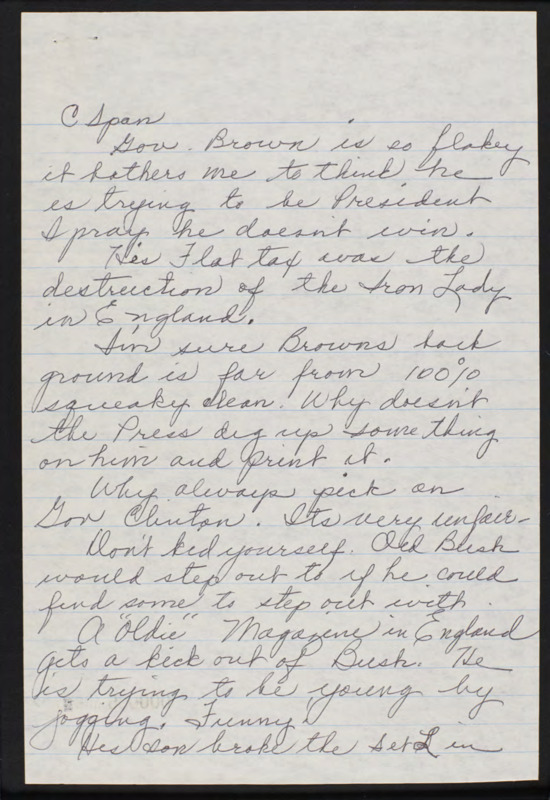 C Span
Gov. Brown is so flakey
it bothers me to think he
is trying to be President
I pray he doesn't win.
His Flat tax was the
destruction of the Iron Lady
in England.
I'm sure Browns back
ground is far from 100%
squeaky clean. Why doesn't
the Press dig up some thing
on him and print it.
Why always pick on
Gov Clinton. Its very unfair-
Don't kid yourself. Old Bush
would step out to if he could
find some to step out with.
A "Oldie" Magazine in England
gets a kick out of Bush. He
is trying to be young by
jogging. Funny!
His son broke the S & L in